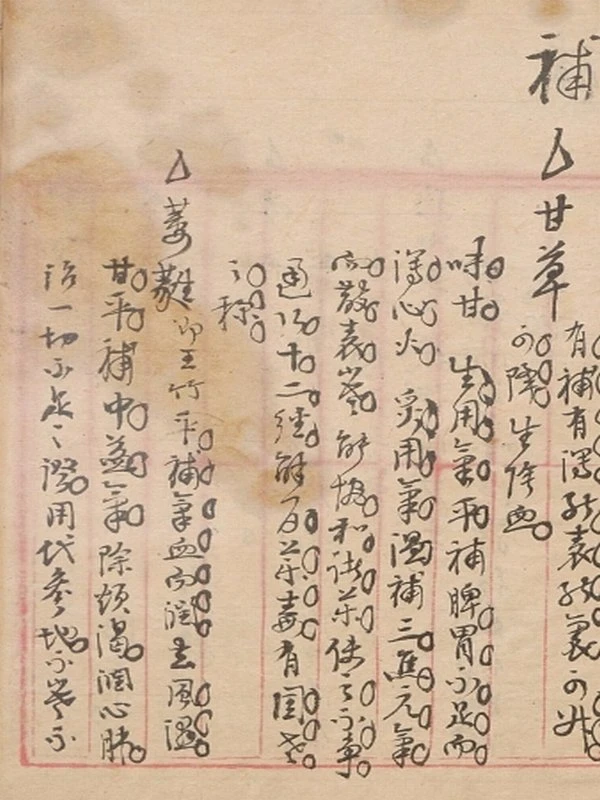 補
甘草 有補有瀉能表能裏可升
可降 生降血
味甘 生用氣平補脾胃不足而
瀉心火 炙用氣溫補三焦元氣
而散表寒 能協和諸藥使之不爭
通行十二經解百藥毒有國老
之称
萎蕤 即玉竹 平補氣血而潤去風濕
甘平補中益氣 除煩渴潤心肺
治一切不足 用代參地不寒不